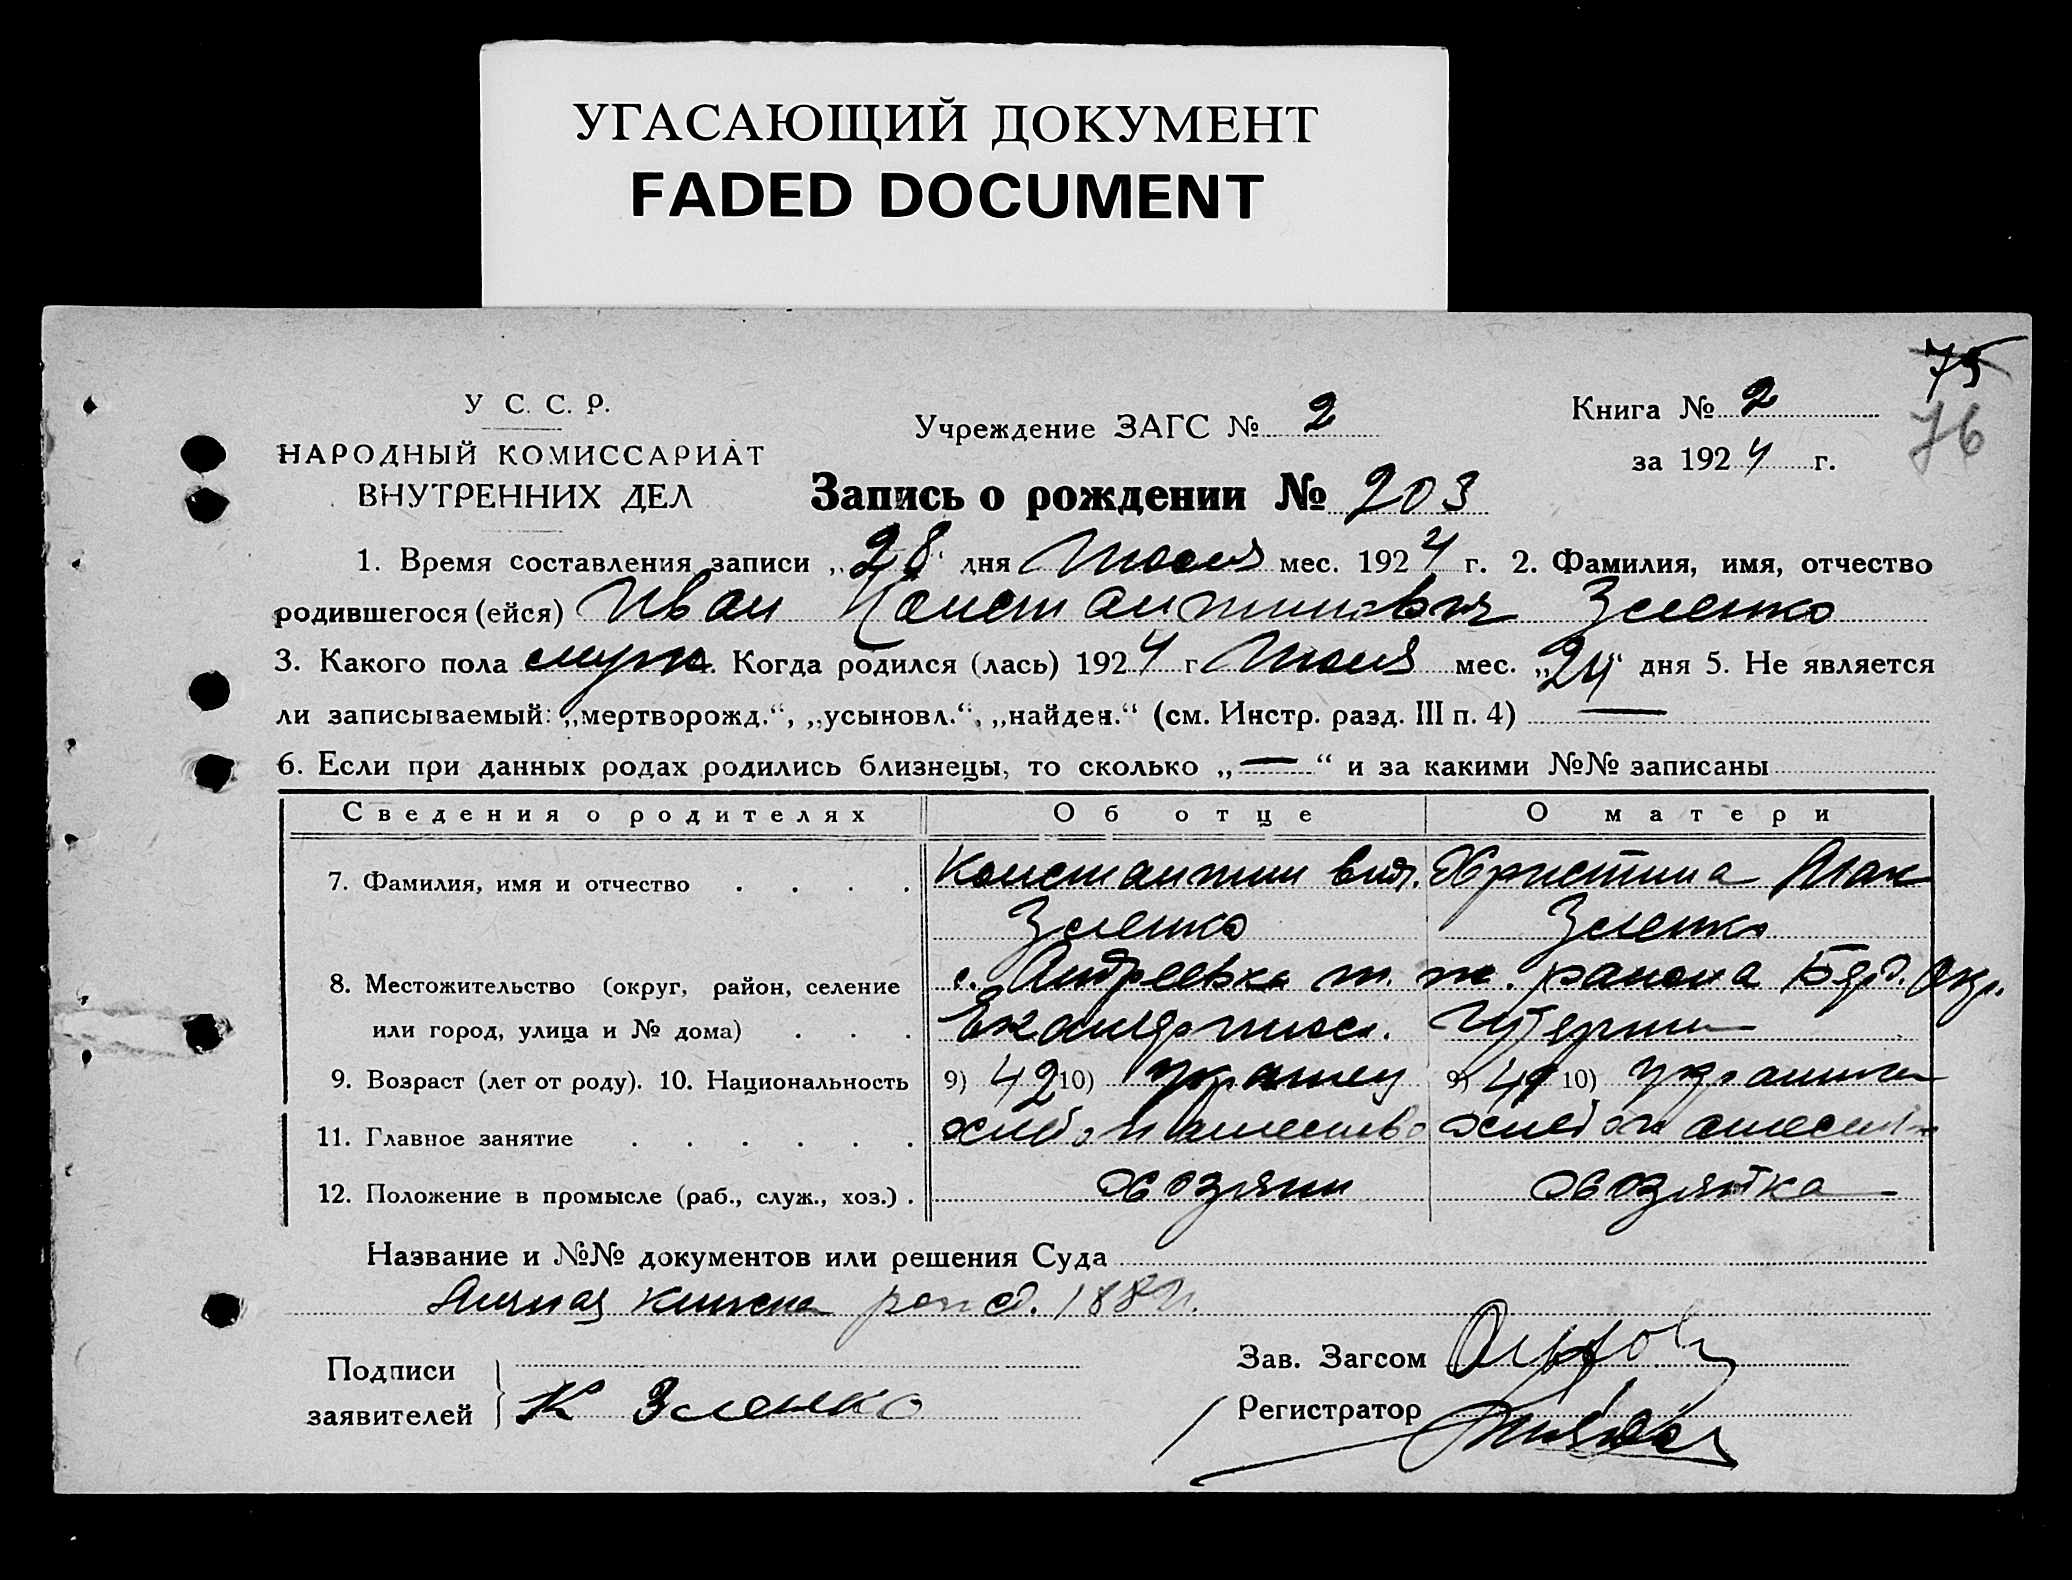 УГАСАЮЩИЙ ДОКУМЕНТ
FADED DOCUMENT
75
76
У С. С. Р.
НАРОДНЫЙ КОМИССАРИАТ
ВНУТРЕННИХ ДЕЛ
Учреждение ЗАГС № 2
Книга № 2
за 1924 г.
Запись о рождении № 203
1. Время составления записи „28“ дня Июля мес. 1924 г. 2. Фамилия, имя, отчество
родившегося (ейся) Иван Константинович Зленко
3. Какого пола муж 4. Когда родился (лась) 1924 г Июля мес. „24“ дня 5. Не является
ли записываемый: „мертворожд.“, „усыновл.“, „найден.“ (см. Инстр. разд. III п. 4) —
6. Если при данных родах родились близнецы, то сколько „—“ и за какими №№ записаны
Сведения о родителях Об отце О матери
7. Фамилия, имя и отчество Константин Христина
Зленко Зленко
8. Местожительство (округ, район, селение с. Андреевка т. ж. района Бер. Окр.
или город, улица и № дома) Губернии
9. Возраст (лет от роду). 10. Национальность 9) 42 10) украинец 9) 10)
11. Главное занятие хлебопашество
12. Положение в промысле (раб., служ., хоз.) хозяин хозяйка
Название и №№ документов или решения Суда
Личная книжка
Подписи
заявителей К Зленко
Зав. Загсом
Регистратор